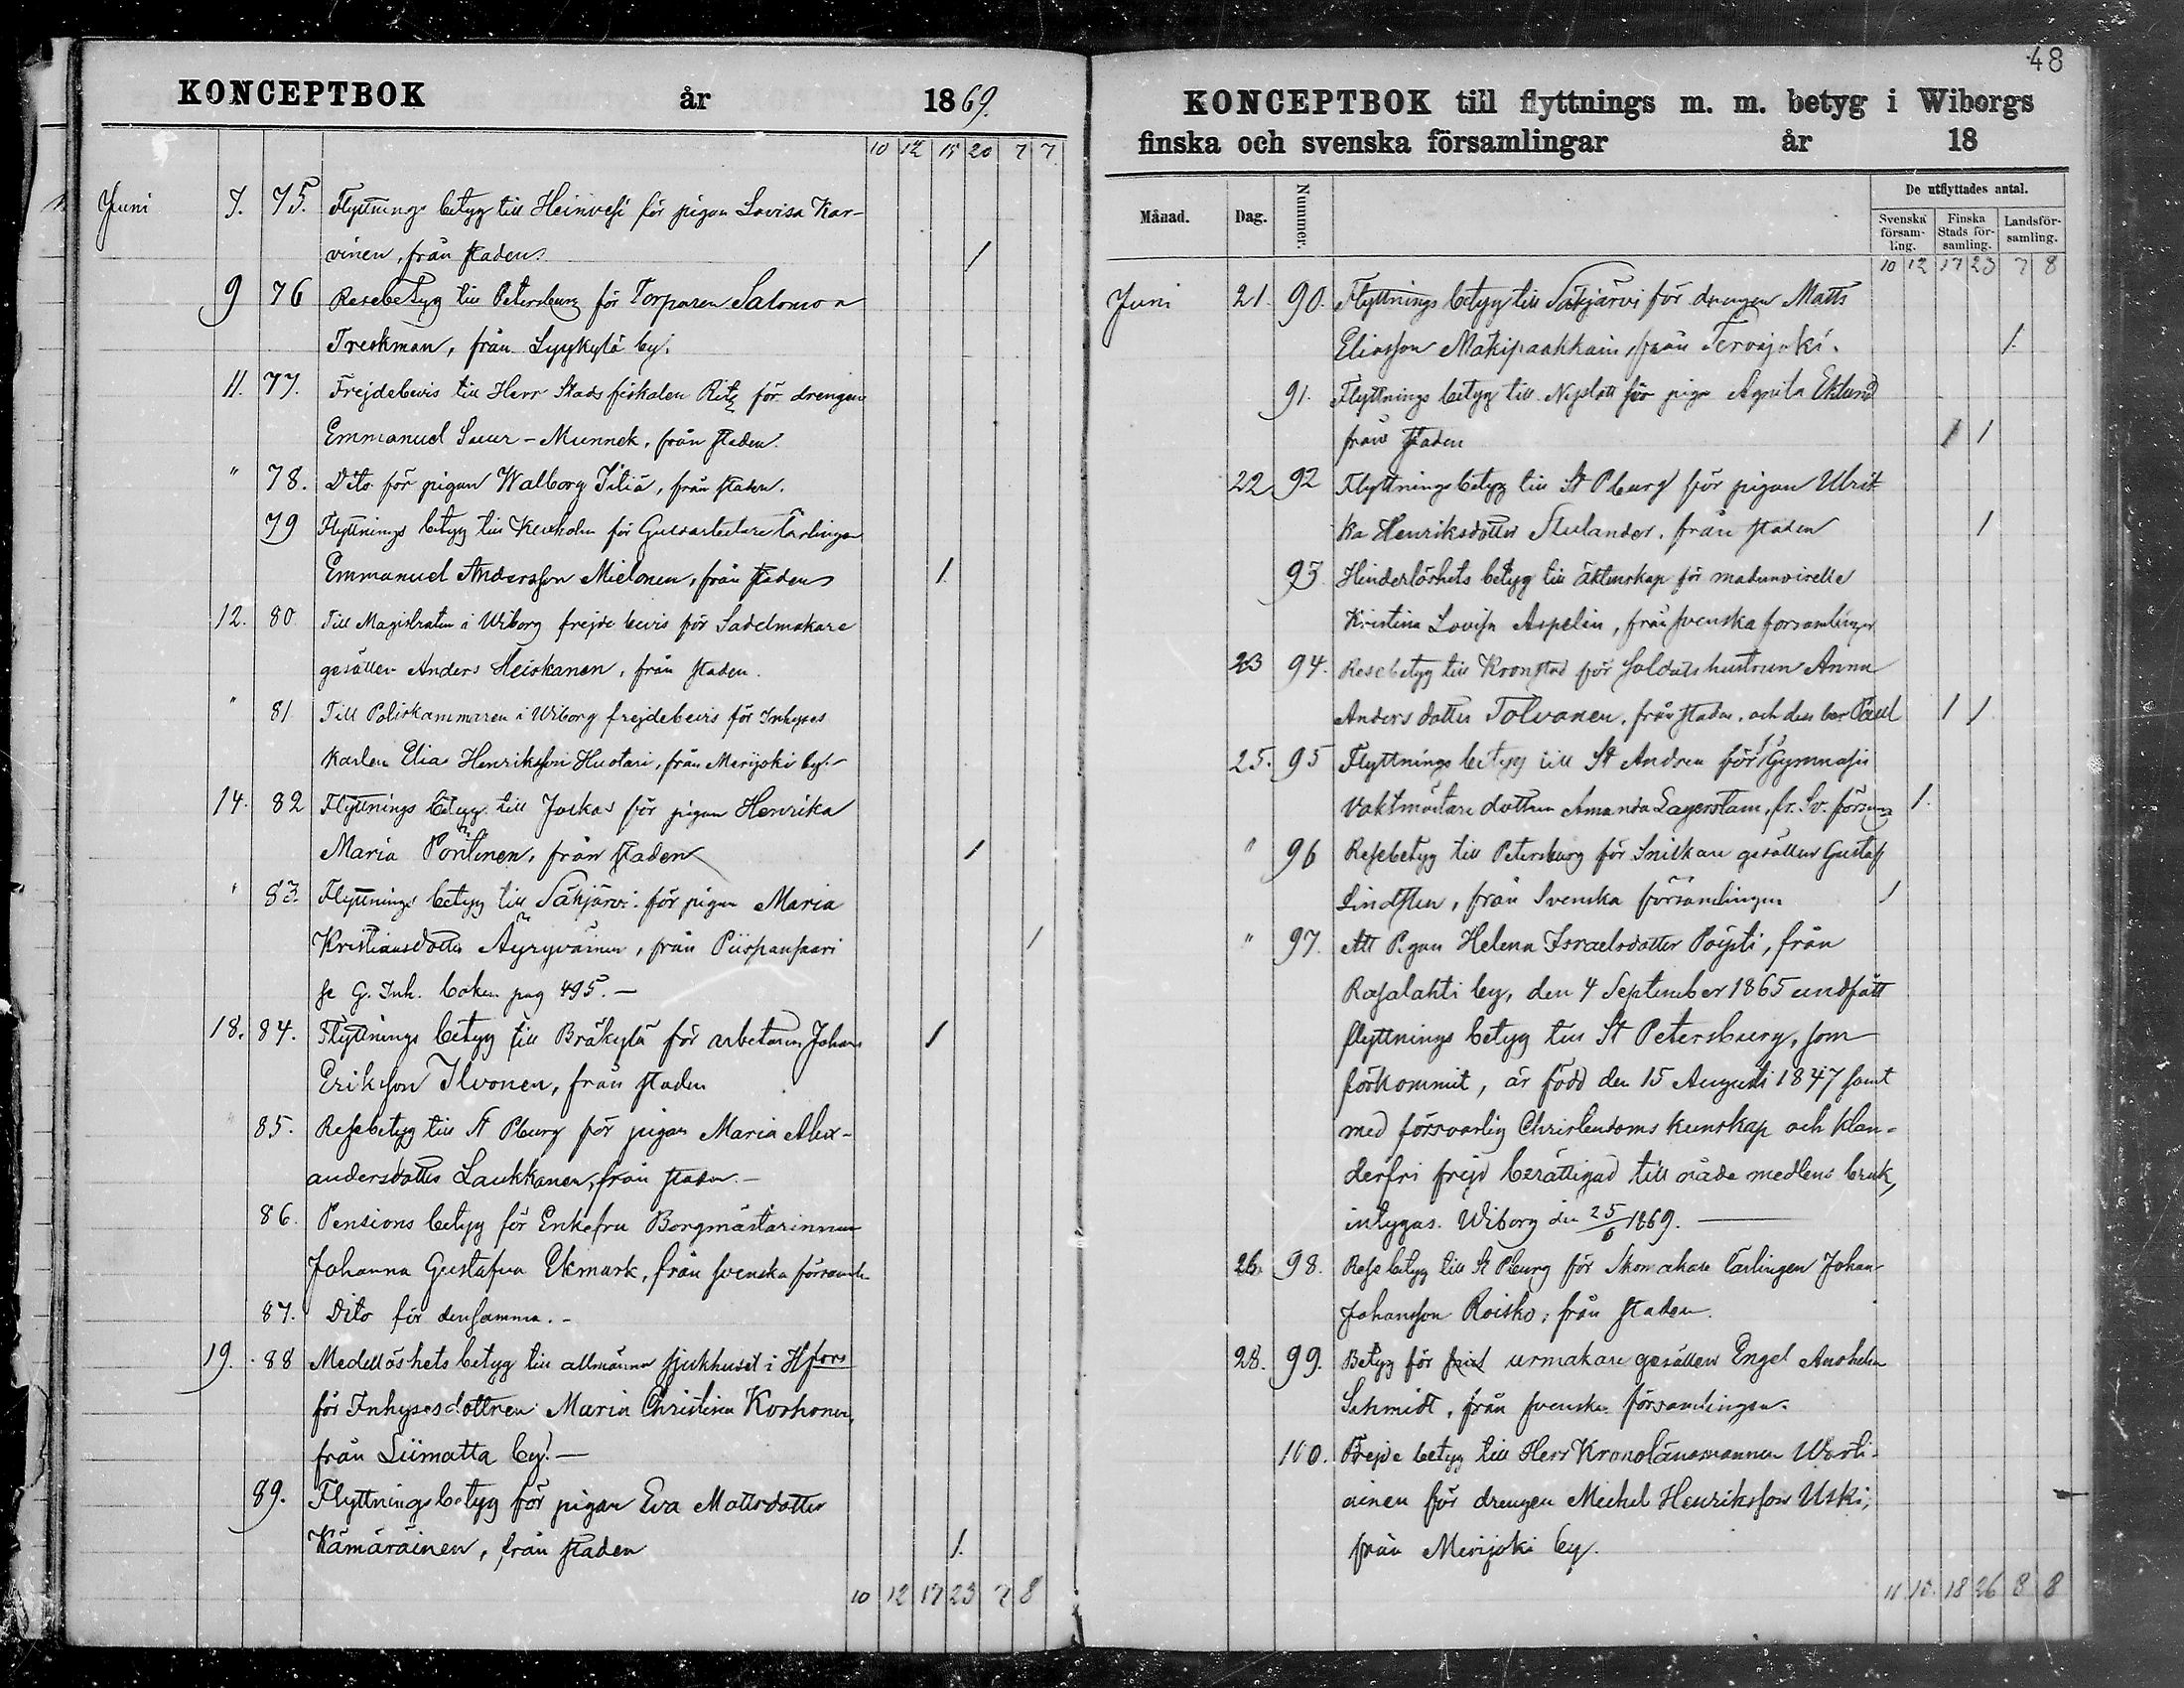 48
KONCEPTBOK år 1869.
10 12 15 20 7 7
Juni 7. 75. Flyttnings betyg till Heinvesi för pigan Lovisa Kar-
vinen, från staden. 1
9 76 Resebetyg till Petersburg för Torparen Salomon
Treskman, från Lyykylä by.
11. 77. Frejdebevis till Herr Stads fiskalen Ritz för drengen
Emmanuel Suur-Munnek, från staden.
" 78. Dito för pigan Walborg Tiliä, från staden.
79 Flyttnings betyg till Kexholm för Gulvarbetare lärlingen
Emmanuel Andersson Mielonen, från staden 1
12. 80 Till Magistraten i Wiborg frejde bevis för Sadelmakare
gesällen Anders Heiskanen, från staden.
" 81 Till Poliskammaren i Wiborg frejdebevis för Inhyses
karlen Elias Henriksson Huotari, från Merijoki by.
14. 82 Flyttnings betyg till Jockas för pigan Henrika
Maria Pöntinen, från staden 1
" 83. Flyttnings betyg till Säkjärvi för pigan Maria
Kristiansdotter Äyryväinen, från Piispansaari 1
se G. Inh. boken pag 495. —
18. 84. Flyttnings betyg till Bräkylä för arbetaren Johan 1
Eriksson Ilvonen, från staden
85. Resebetyg till St Pburg för pigan Maria Alex-
andersdotter Laukkanen, från staden. —
86. Pensions betyg för Enkefru Borgmästarinnan
Johanna Gustafva Ekmark, från svenska församl.
87. Dito för densamma. -
19. 88 Medellöshets betyg till allmänna sjukhuset i Hfors
för Inhysesdottren Maria Christina Korhonen,
från Liimatta by. —
89. Flyttningsbetyg för pigan Eva Mattsdotter
Kämäräinen, från staden 1.
10 12 17 23 7 8
KONCEPTBOK till flyttnings m. m. betyg i Wiborgs
finska och svenska församlingar år 18
Månad. Dag. Nummer. De utflyttades antal.
Svenska försam-ling. Finska Stads för-samling. Landsför-samling.
10 12 17 23 7 8
Juni 21. 90. Flyttnings betyg till Säkjärvi för drengen Matts
Eliasson Mäkipaakkain, från Tervajoki. 1.
91. Flyttnings betyg till Nyslott för pigan Agnita Eklund
från staden 1 1
22 92 Flyttningsbetyg till St Pburg för pigan Ulrik-
ka Henriksdotter Stulander, från staden 1
93. Hinderlöshets betyg till äktenskap för mademoiselle
Kristina Lovisa Aspelin, från svenska församlingen
23 94. Resebetyg till Kronstad för soldatshustrun Anna
Anders dotter Tolvanen, från staden, och dess barn Paul 1 1
25. 95 Flyttnings betyg till St Andrea för Gymnasii
Vaktmästare dottren Amanda Lagerstam, fr. Sv. försam. 1.
" 96 Resebetyg till Petersburg för Snickare gesällen Gustaf
Lindsten, från Svenska församlingen 1
" 97. Att Pigan Helena Israelsdotter Pöysti, från
Rasalahti by, den 4 September 1865 undfått
flyttnings betyg till St Petersburg, som
förkommit, är född den 15 Augusti 1847 samt
med försvarlig Christendoms kunskap och klan-
derfri frejd berättigad till nåde medlens bruk,
intygas. Wiborg den 25/6 1869. —
26. 98. Rese betyg till St Pburg för Skomakare lärlingen Johan
Johansson Roisko, från staden.
28. 99. Betyg för urmakare gesällen Engel Anshelm
Schmidt, från svenska församlingen.
100. Frejde betyg till Herr Kronolänsmannen Warti-
ainen för drengen Mickel Henriksson Uski,
från Merijoki by.
11 12. 18 26 8 8